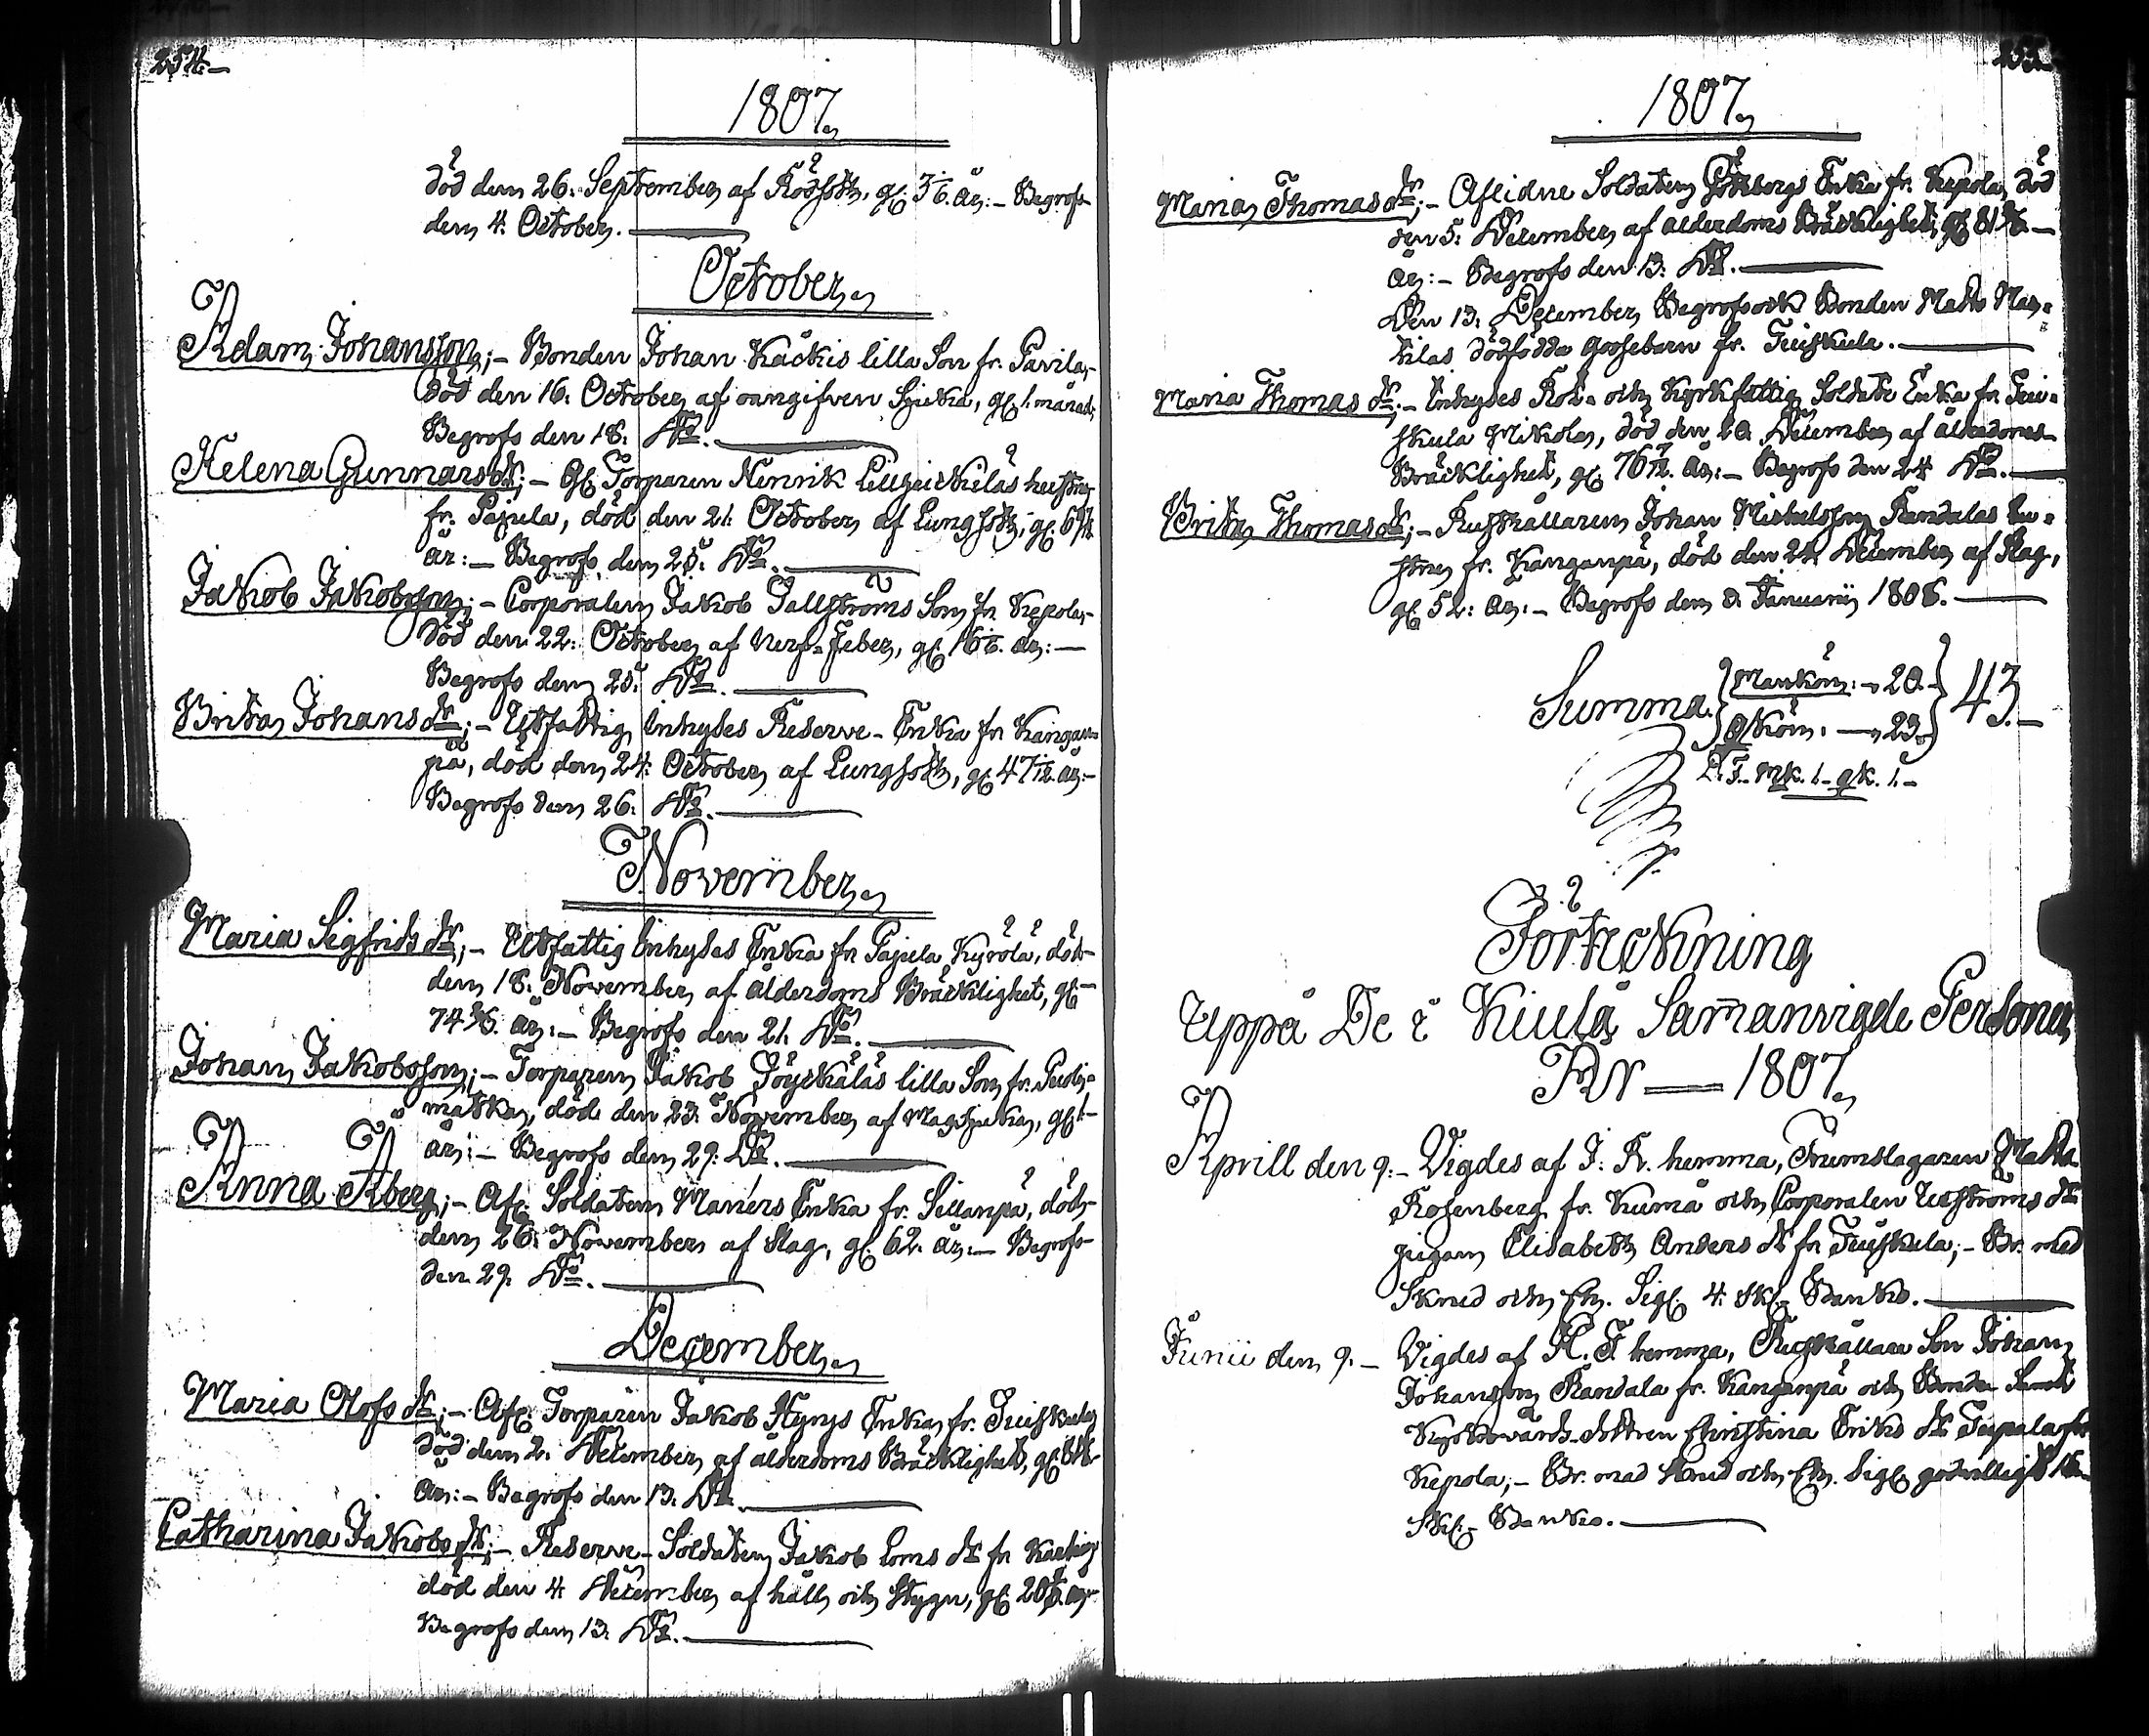 254.
1807.
död den 26. September af Rödsoth, gl. 3 1/6. år: – Begrofs
den 4. October.
October.
Adam Johansson; – Bonden Johan Kackis lilla Son fr. Pavila,
död den 16. October af oangifven Sjuka, gl. 1. månad,
Begrofs den 18. Do.
Helena Gunnarsdr; – Gl. Torparen Henrik hustru
fr. Pajula, död den 21. October af Lungsoth, gl.
år: – Begrofs den 25. Do.
Jakob Jakobsson; – Corporalen Jakob Tallströms Son fr. Kepola,
död den 22. October af Nerf-Feber, gl. 16 år: –
Begrofs den 25. Do.
Brita Johansdr; – Utfattig Inhyses Reserve-Enka fr. Kangan-
pä, död den 24. October af Lungsoth, gl. 47 år: –
Begrofs den 26. Do.
November.
Maria Sigfridsdr; – Utfattig Inhyses Enka fr. Pajula Kyrölä, död
den 18. November af ålderdoms Bräcklighet, gl.
74 5/6. år: – Begrofs den 21. Do.
Johan Jakobsson; – Torparen Jakob lilla Son fr.
matka, död den 23. November af Magsjuka, gl. 1
år: – Begrofs den 29. Do.
Anna Åberg; – Afl. Soldaten Maners Enka fr. Sillanpä, död
den 26. November af slag, gl. 62. år: – Begrofs
den 29. Do.
December.
Maria Olofsdr; – Afl. Torparen Jakob Hyrys Enka fr. Tuiskula
död den 2. December af ålderdoms Bräcklighet, gl.
år: – Begrofs den 13. Do.
Catharina Jakobsdr; – Reserve-Soldaten Jakob Loms dr fr.
död den 4. December af håll och Stygn, gl. 20 år
Begrofs den 13. Do.
255.
1807.
Maria Thomasdr; – Aflidne Soldaten Enka fr. Kepola, död
den 5. December af ålderdoms Bräcklighet, gl. 81
år: – Begrofs den 13. Do.
Den 13. December Begrofs ock Bonden Matts
tilas dödfödda Gossebarn fr. Tuiskula.
Maria Thomasdr; – Inhyses Rot- och Kyrkfattig Soldate Enka fr. Tui-
skula Mikola, död den 20. December af ålderdoms
Bräcklighet, gl. 76 år: – Begrofs den 24. Do.
Brita Thomasdr; – Rusthållaren Johan Michelsson Randalas hu-
stru fr. Kanganpä, död den 22. December af Slag,
gl. 52. år: – Begrofs den 8. Januarii 1808.
Summa { Mankön: – 20. } 43. –
Qkön. – 23.
D. F. mk. 1. – qk. 1. –
Förteckning
Uppå De i Kiula Sam̄anvigde Personer
År — 1807.
Aprill den 9. – Vigdes af J. A. hemma, Trumslagaren Matts
Rosenberg fr. Kumå och Corporalen Ulfströms dr
pigan Elisabeth Andersdr fr. Tuiskula; – Br. med
Skrud och Ch. Sigl. 4. Skl. Banko.
Junii den 9. – Vigdes af H. F. hemma, Rusthållare Son Johan
Johansson Randala fr. Kanganpä och Bonde Samt
Kyrkovärds-dottren Christina Eriksdr fr
Kepola; – Br. med Skrud och Ch. Sigl. godvilligt 16
Skl. – Banko.